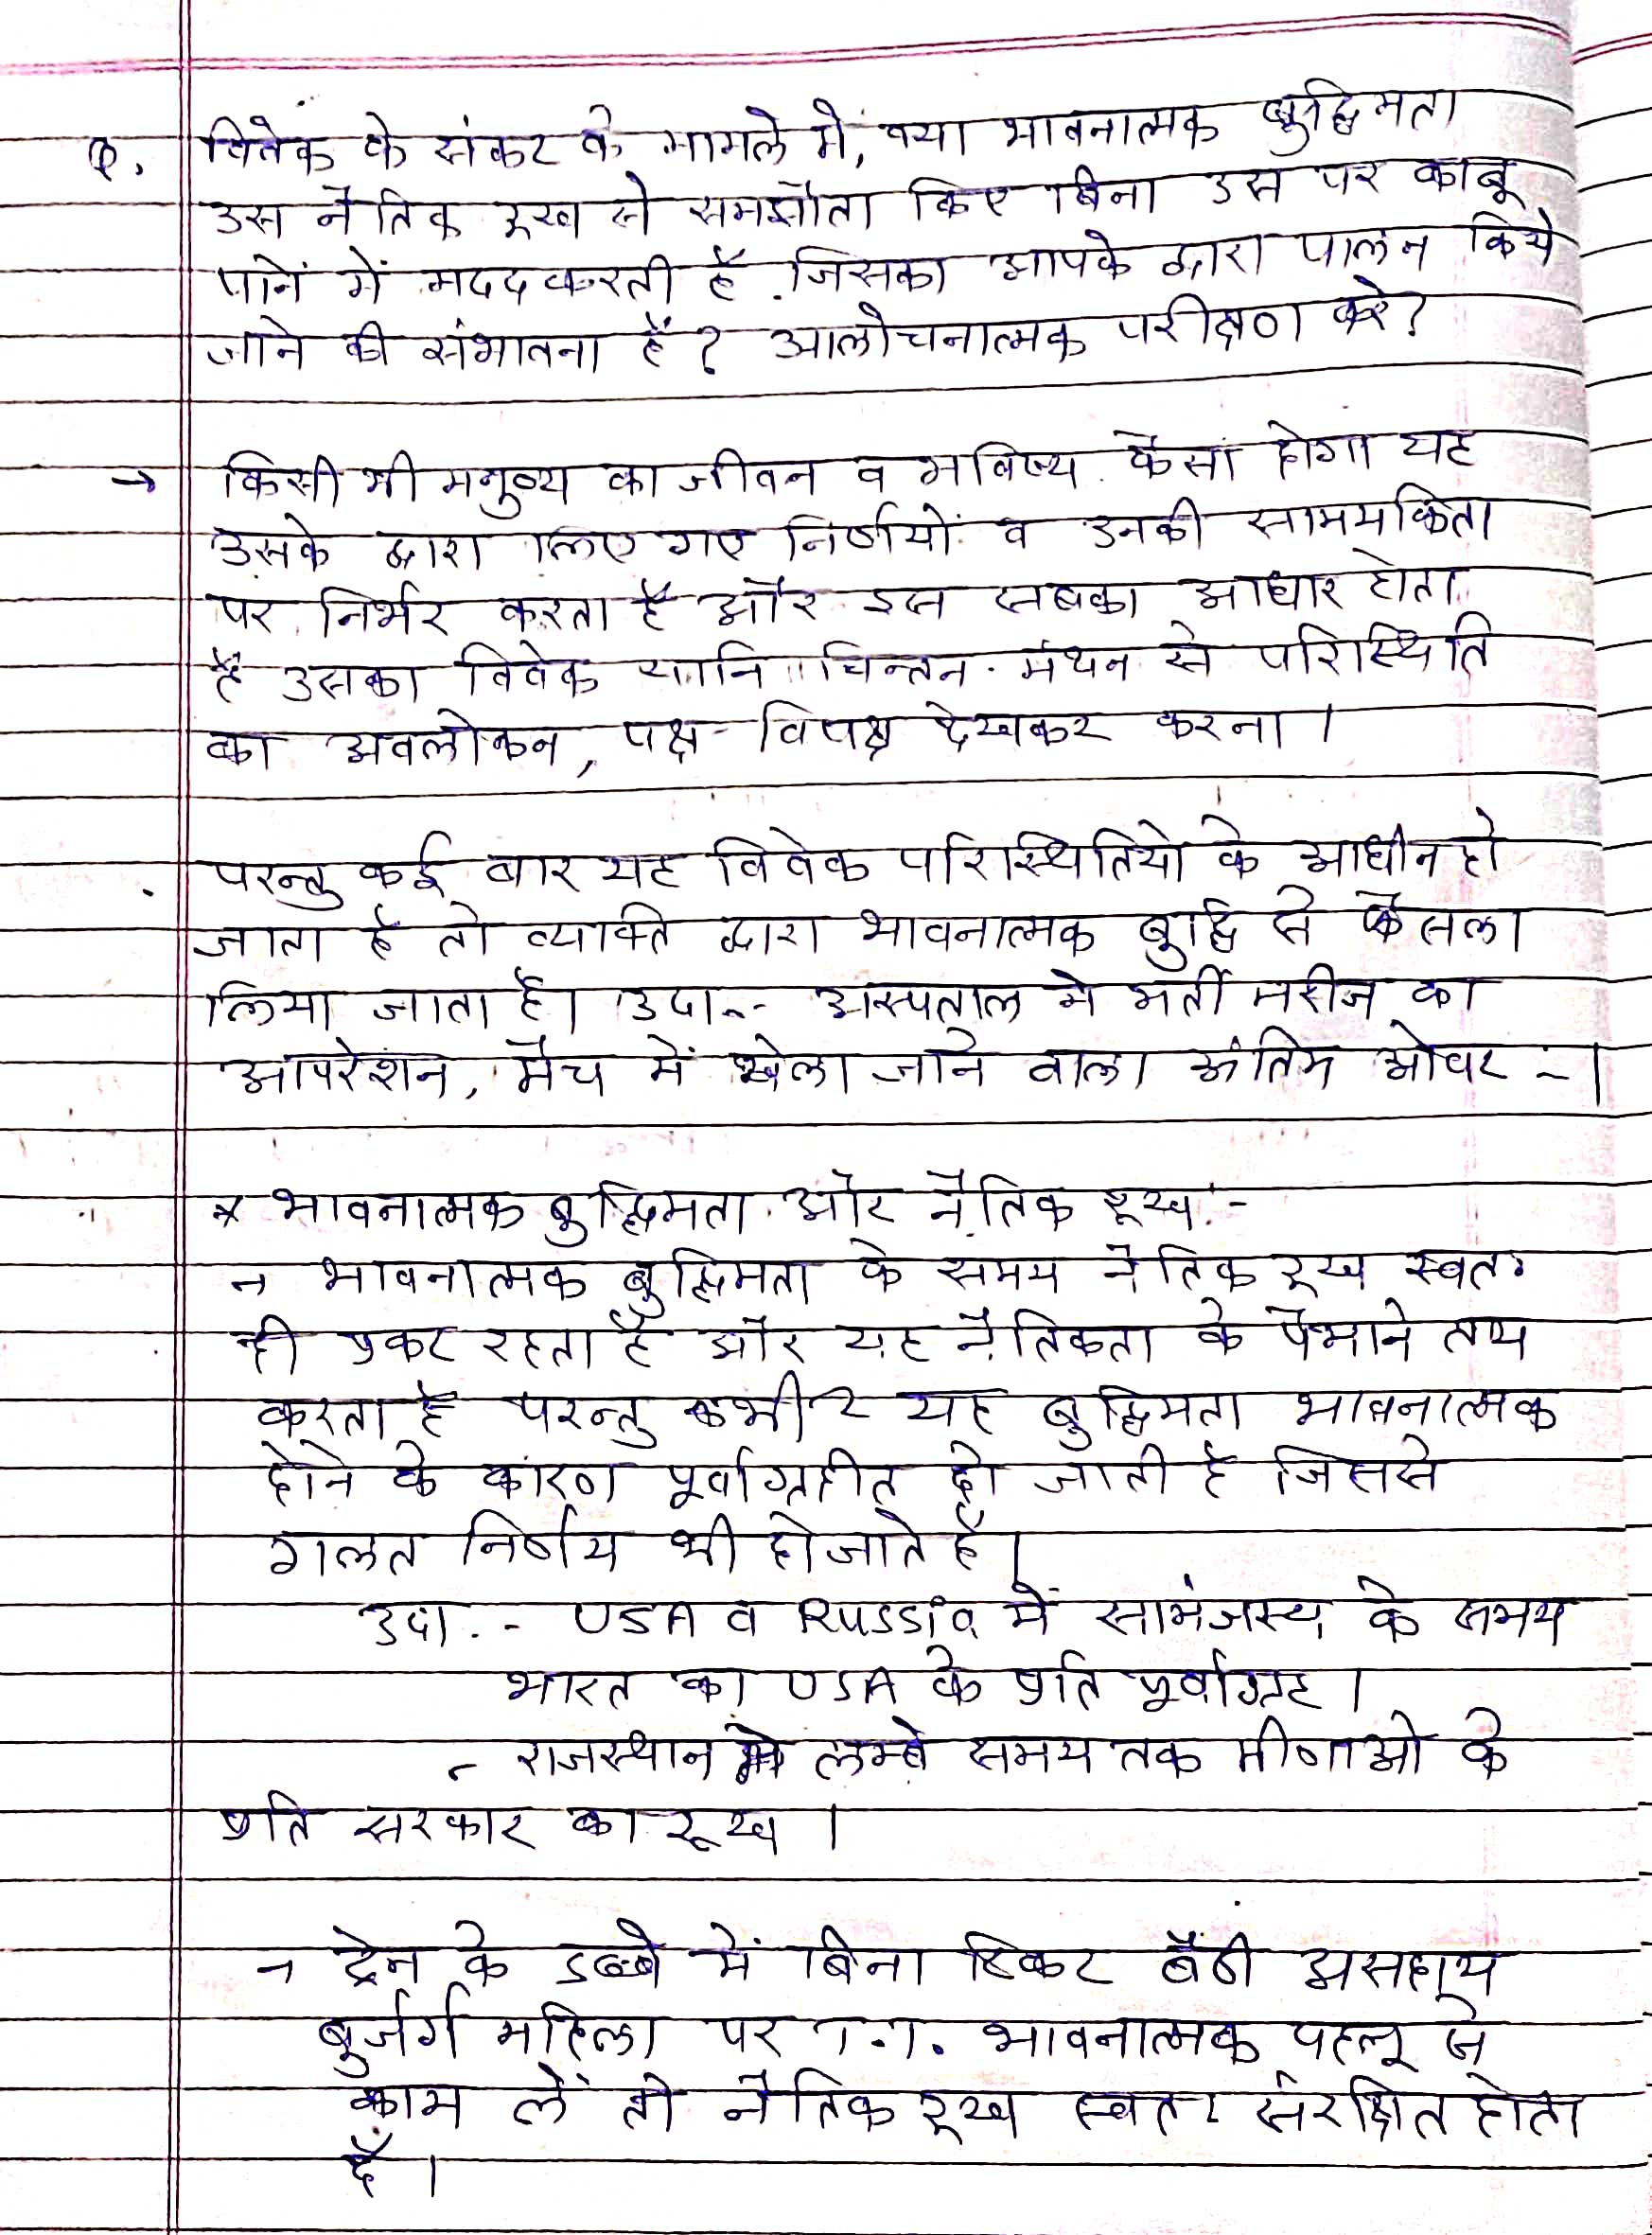 Q. विवेक के संकट के मामले में, क्या भावनात्मक बुद्धिमता
उस नैतिक रूख से समझौता किए बिना उस पर काबू
पाने में मदद करती है जिसका आपके द्वारा पालन किये
जाने की संभावना है? आलोचनात्मक परीक्षण करे?
→ किसी भी मनुष्य का जीवन व भविष्य कैसा होगा यह
उसके द्वारा लिए गए निर्णयों व उनकी सामयिकता
पर निर्भर करता है और इस सबका आधार होता
है उसका विवेक यानि चिन्तन-मंथन से परिस्थिति
का अवलोकन, पक्ष-विपक्ष देखकर करना।
परन्तु कई बार यह विवेक परिस्थितियो के आधीन हो
जाता है तो व्यक्ति द्वारा भावनात्मक बुद्धि से फैसला
लिया जाता है। उदा.- अस्पताल मे भर्ती मरीज का
आपरेशन, मैच में खेला जाने वाला अंतिम ओवर -।
* भावनात्मक बुद्धिमता और नैतिक रूख :-
→ भावनात्मक बुद्धिमता के समय नैतिक रूख स्वतः
ही प्रकट रहता है और यह नैतिकता के पैमाने तय
करता है परन्तु कभी2 यह बुद्धिमता भावनात्मक
होने के कारण पूर्वाग्रहीत हो जाती है जिससे
गलत निर्णय भी हो जाते है।
उदा.- USA व Russia में सामंजस्य के समय
भारत का USA के प्रति पूर्वाग्रह।
- राजस्थान मे लम्बे समय तक मीणाओ के
प्रति सरकार का रूख।
→ ट्रेन के डब्बे में बिना टिकट बैठी असहाय
बुर्जर्ग महिला पर T.T. भावनात्मक पहलू से
काम लें तो नैतिक रूख स्वतः संरक्षित होता
है।